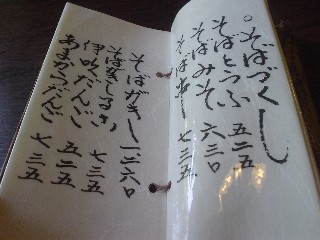 。そばづくし
そばとうふ 五二五
そばみそ 六三〇
七三五
そばがき 一二六〇
そばぜんざい 七三五
伊吹だんご 五二五
あまからだんご 七三五